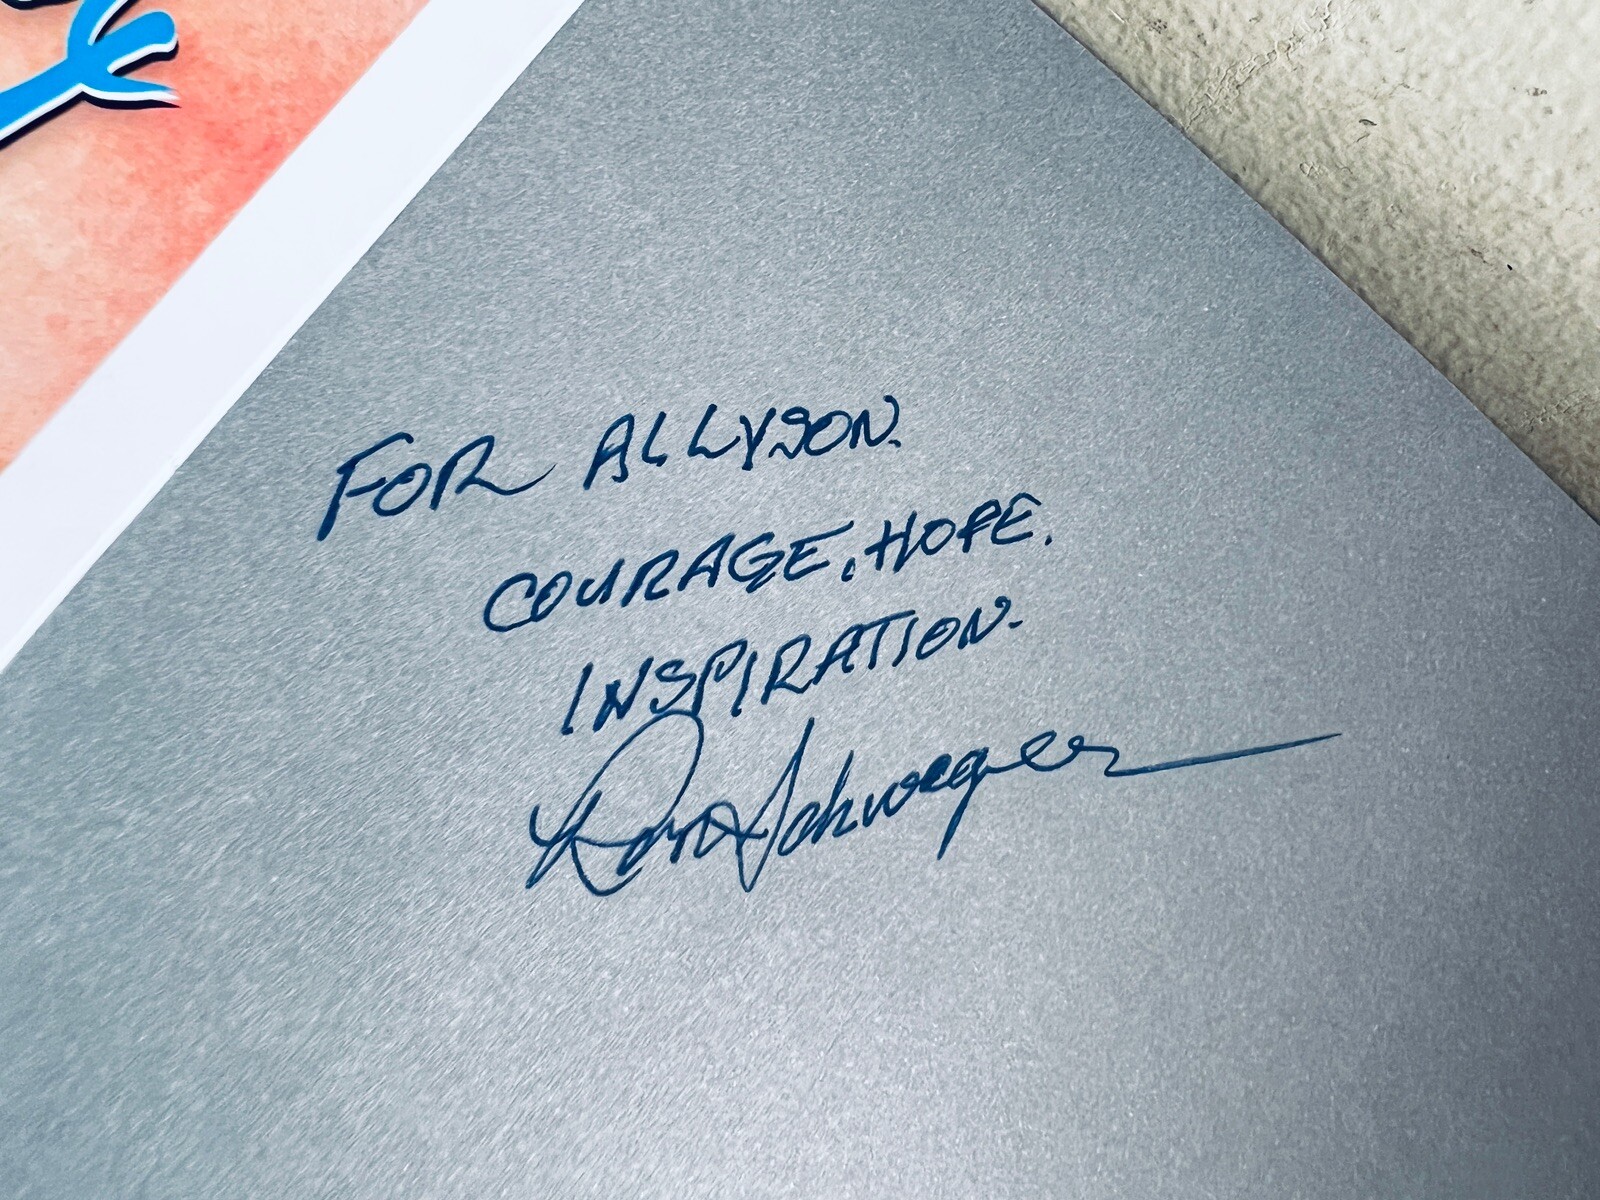 FOR ALLYSON.
COURAGE. HOPE.
INSPIRATION.
Don Schwegler